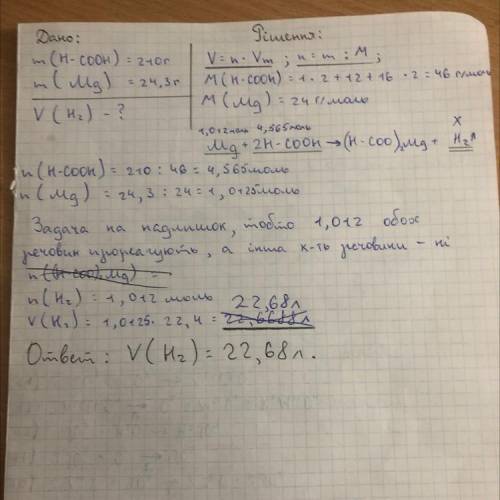 Дано:
Рішення:
m(H-COOH) = 210г
m(Mg) = 24,3г
V(H₂) - ?
V = n · Vm ; n = m : M ;
M(H-COOH) = 1 · 2 + 12 + 16 · 2 = 46 г/моль
M(Mg) = 24 г/моль
1,012моль 4,565моль x
Mg + 2H-COOH → (H-COO)₂Mg + H₂↑
n(H-COOH) = 210 : 46 = 4,565моль
n(Mg) = 24,3 : 24 = 1,0125моль
Задача на надлишок, тобто 1,012 обох
речовин прореагують, а інша к-ть речовини - ні
n(H-COO)₂Mg) =
n(H₂) = 1,012 моль
22,68л
V(H₂) = 1,0125 · 22,4 = 22,6688л
Ответ: V(H₂) = 22,68л.